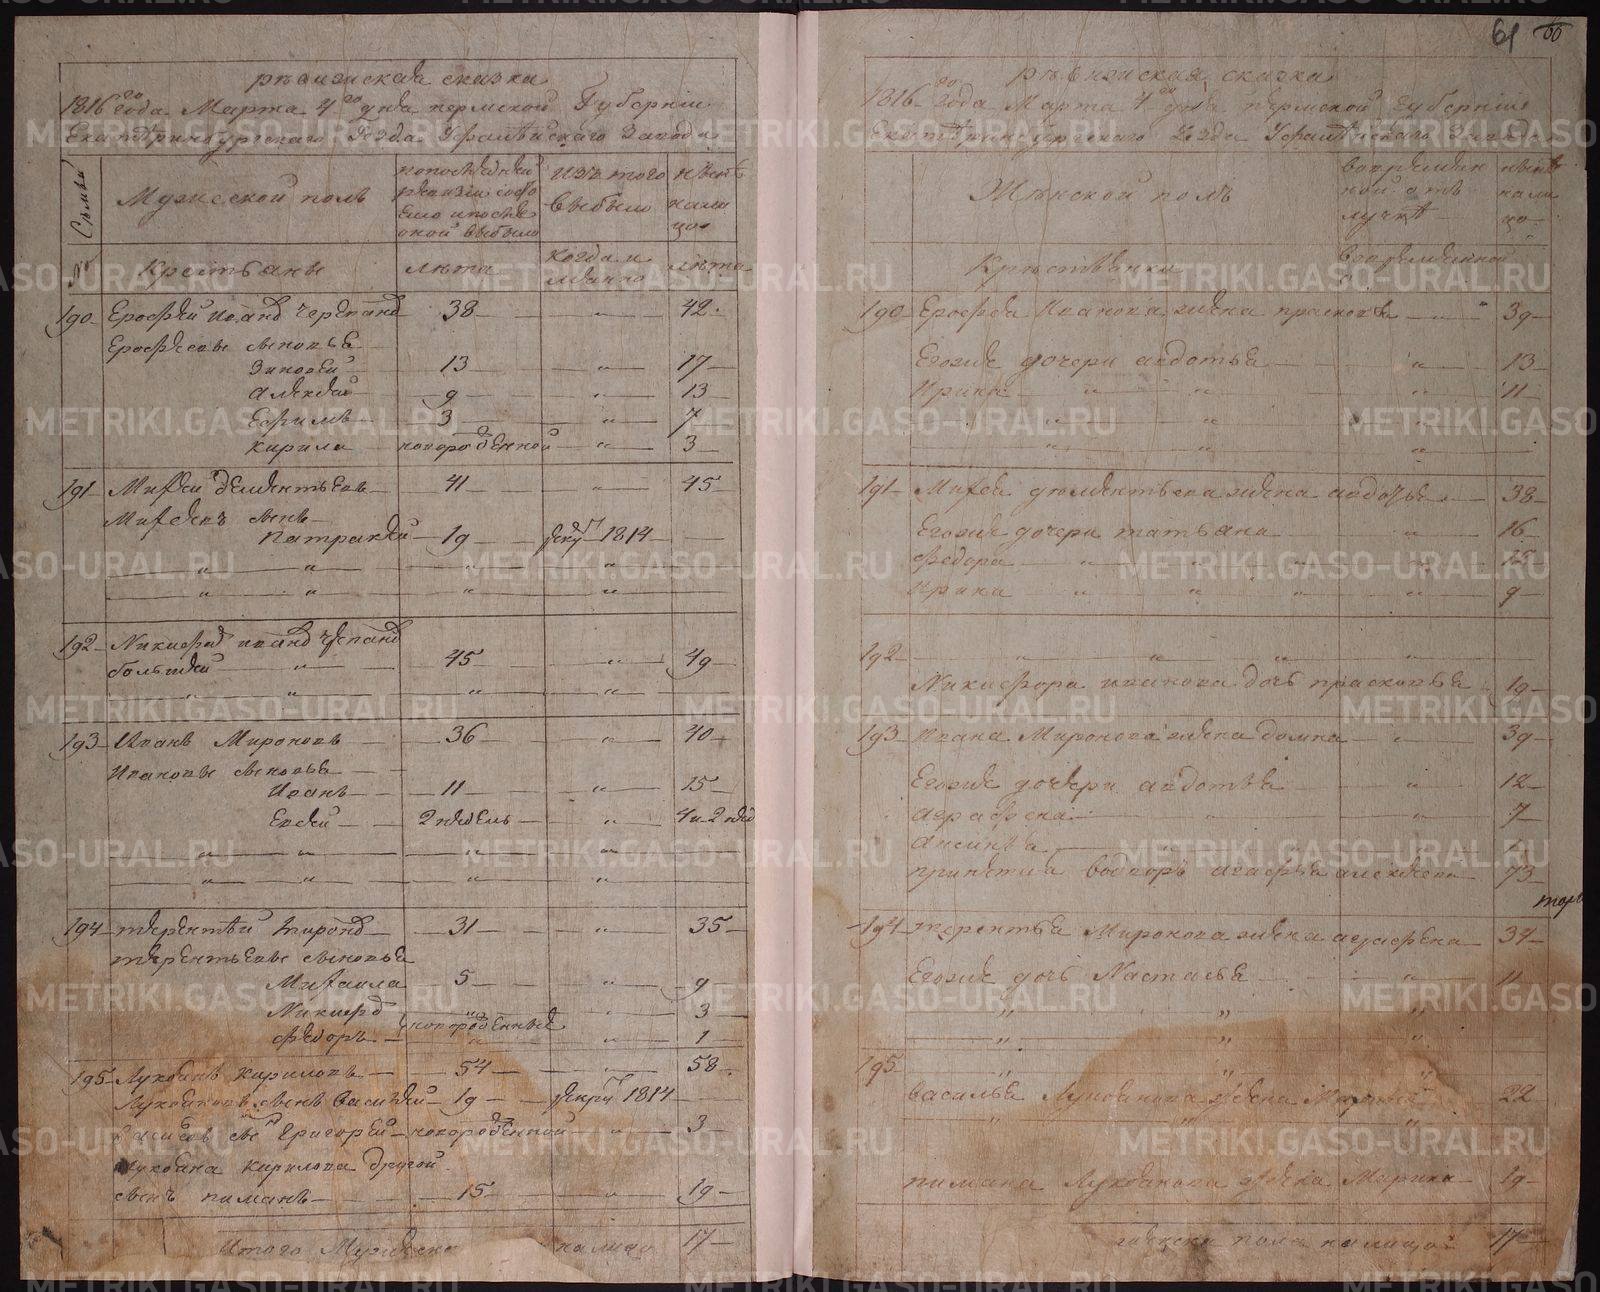 61 60
ревизская сказка
1816 го года Марта 4 го дня пермской Губернии
Екатеринбургского Уезда Уфалейского Завода
Семьи
Мужеской полъ
по последней ревизии состояло и после оной выбыло
изъ того выбыло
ныне на лицо
№
Крестьяне
лета
когда именно
лета
190 Ерофей Иванов Черепанов 38 42
Ерофеевы сыновья
Зиновей 13 17
Алексей 9 13
Ефимъ 3 7
Кирила новорожденной 3
191 Михей Дементьевъ 41 45
Михеевъ сынъ
Патракей 19 рекрут 1814
192 Никифор Иванов Черепанов
большей 45 49
193 Иванъ Мироновъ 36 40
Ивановы сыновья
Иванъ 11 15
Евсей 2 недель 4 и 2 нед
194 терентей Миронов 31 35
терентьевы сыновья
Михаила 5 9
Никифор 3
новорожденные
Федоръ 1
195 Лукоянъ Кириловъ 54 58
Лукояновъ сынъ Василей 19 рекрут 1814
Васильев сын Григорей новорожденной 3
Лукояна Кирилова другой
сынъ пиманъ 15 19
Итого Мужеска на лицо 17
ревизская сказка
1816 го года Марта 4 го дня пермской Губернии
Екатеринбургского Уезда Уфалейского Завода
Женской полъ
во временной отлучке
ныне на лицо
Крестьянки
во временной
190 Ерофея Иванова жена прасковья 39
Егоже дочери авдотья 13
Ирина 11
191 Михея дементьева жена авдотья 38
Егоже дочери татьяна 16
Федора 12
Ирина 9
192
Никифора иванова дочь прасковья 19
193 Ивана Миронова жена домна 39
Егоже дочери авдотья 12
аграфена 7
аксинья 2
принятая вовторъ агафья алексеева 73
194 терентья Миронова жена аграфена 34
Егоже дочь Настасья 11
195
василья Лукоянова жена Марья 22
пимана Лукоянова жена Марина 19
женска пола на лицо 17